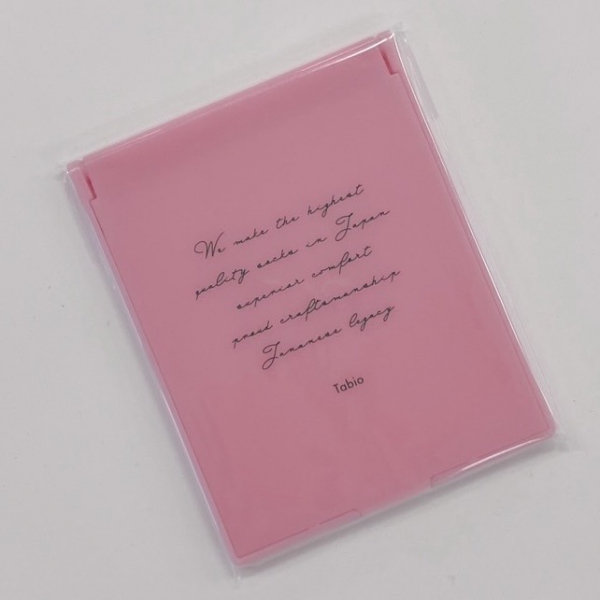 We make the highest
quality socks in Japan
superior comfort
proud craftsmanship
Japanese legacy
Tabio